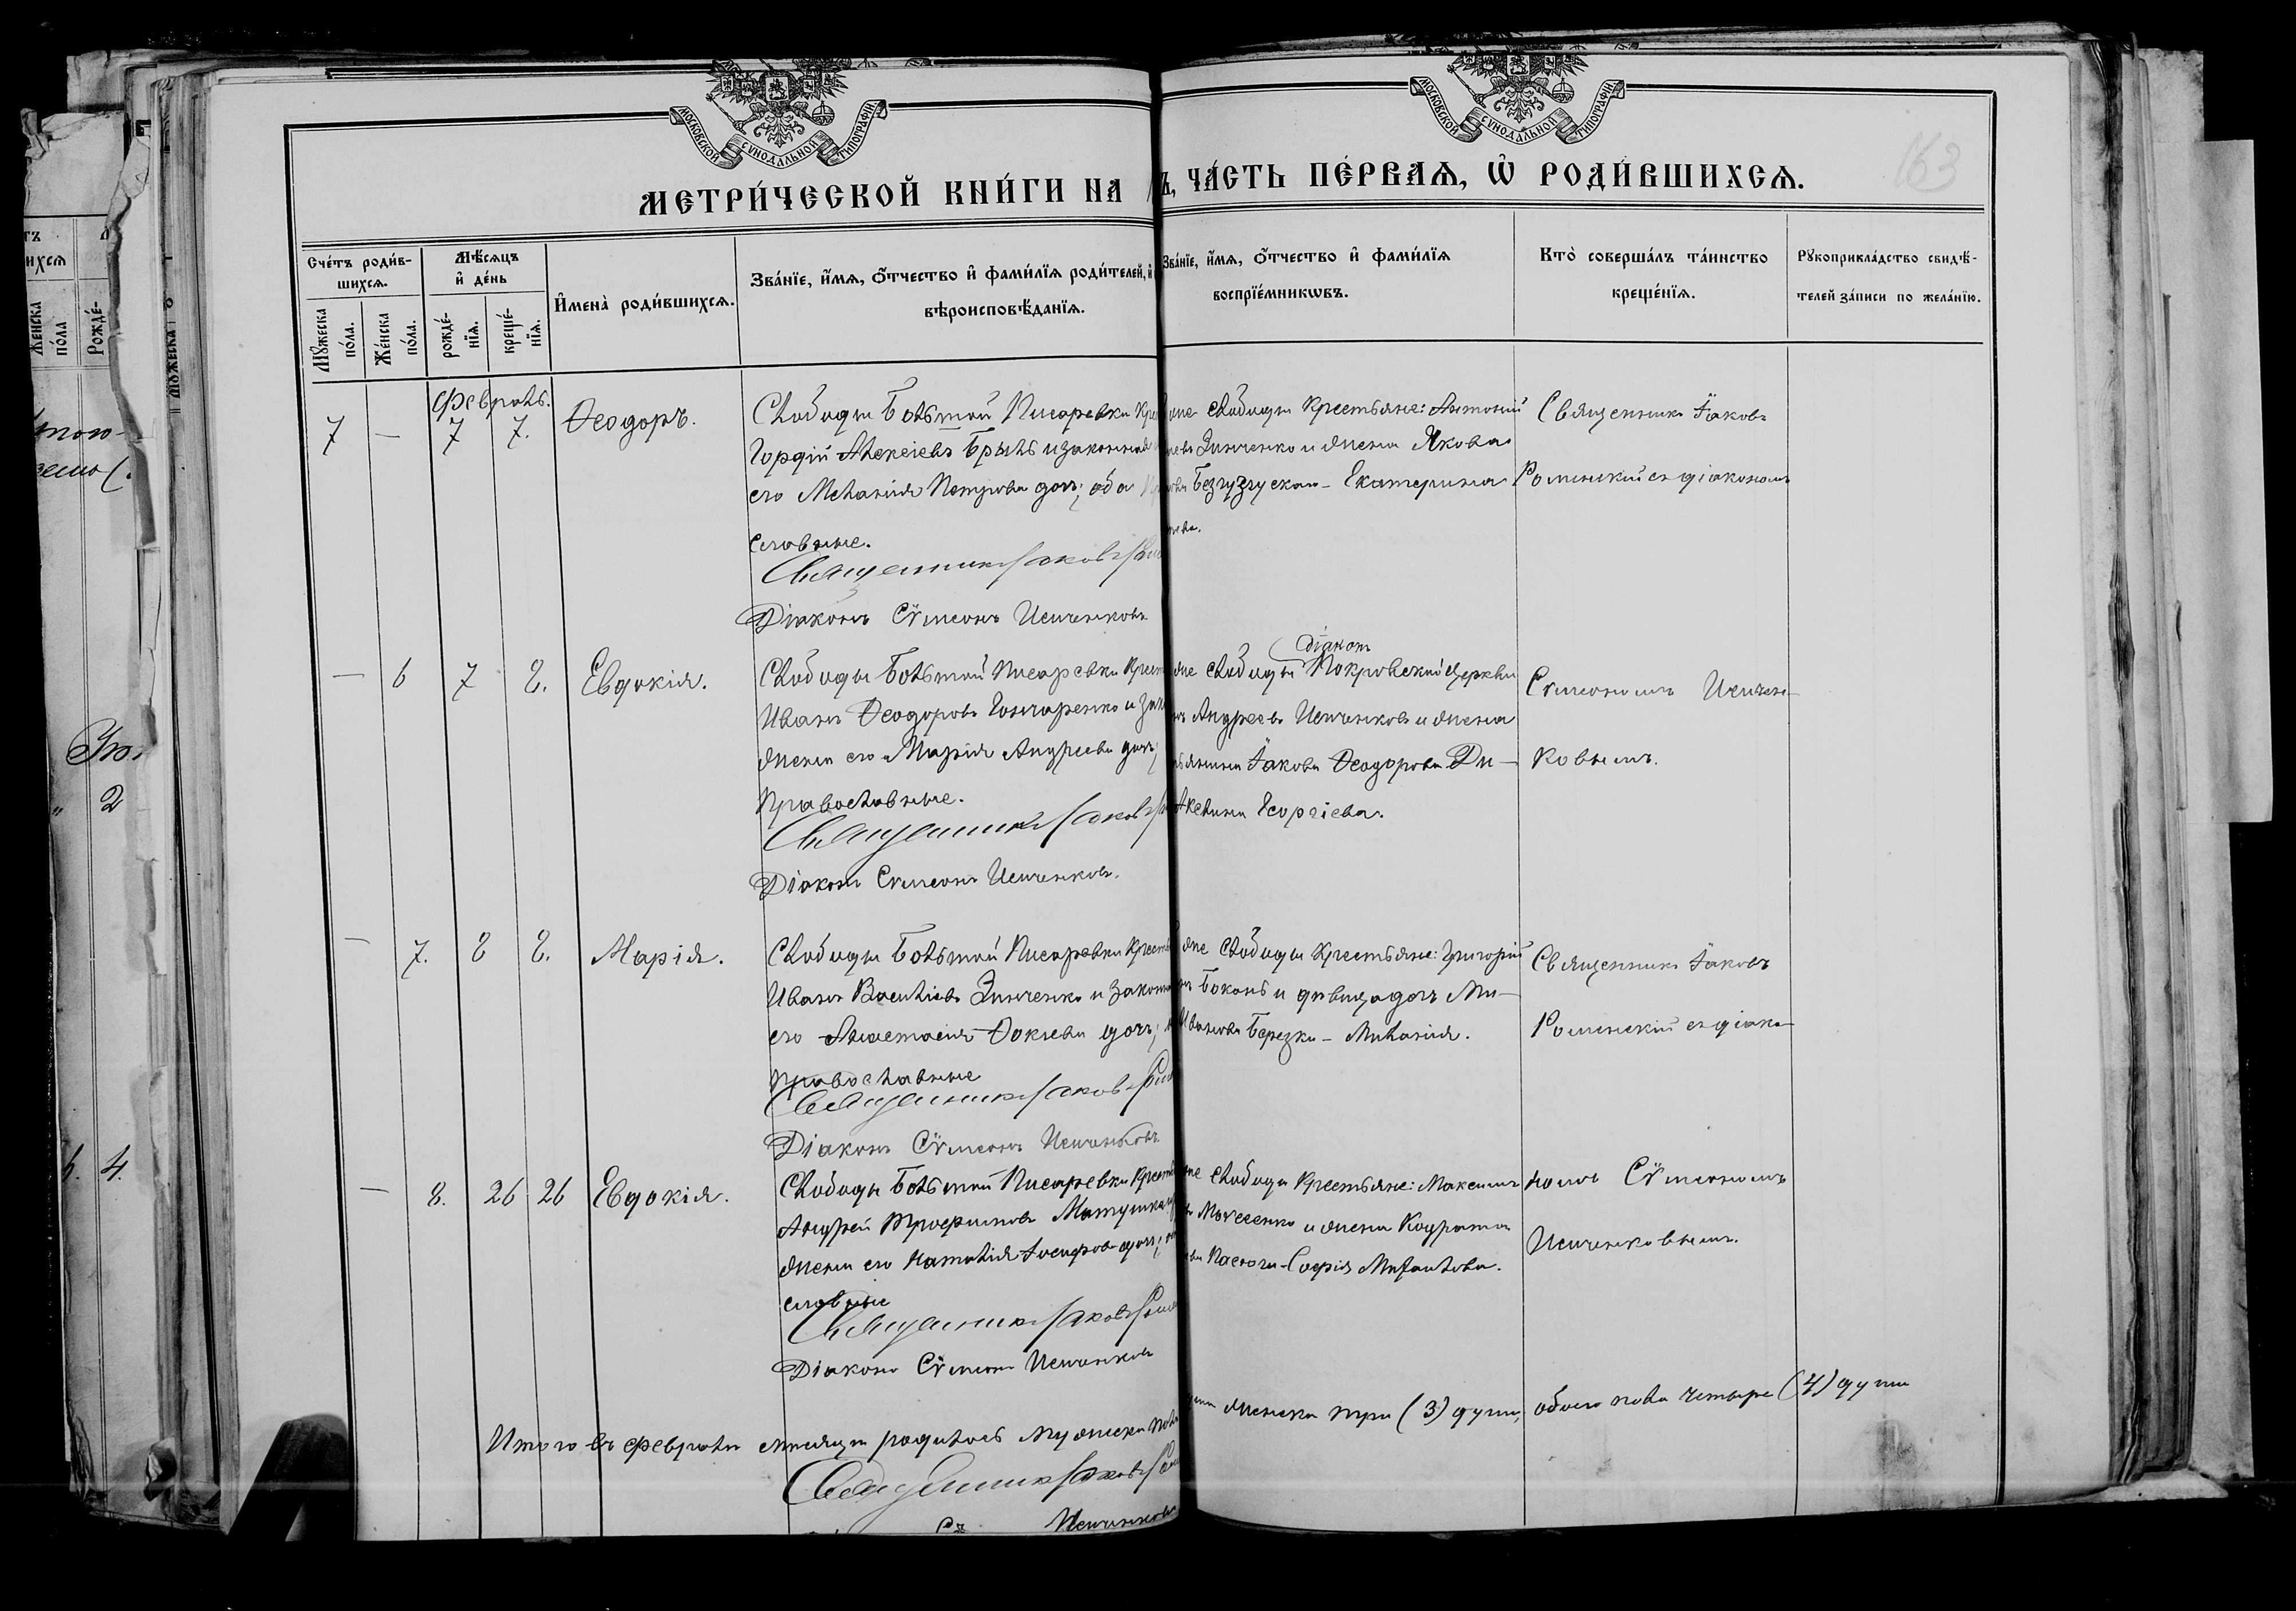 МОСКОВСКОЙ СѴНОДАЛЬНОЙ ТИПОГРАФІИ
МОСКОВСКОЙ СѴНОДАЛЬНОЙ ТИПОГРАФІИ
163
МЕТРИ́ЧЕСКОЙ КНИ́ГИ НА
Ъ, ЧА́СТЬ ПЕ́РВАѦ, Ѡ РОДИ́ВШИХСѦ.
Сче́тъ роди́в-
шихсѧ.
Мꙋ́жеска по́ла.
Же́нска по́ла.
Мѣ́сяцъ
и҆ де́нь
рожде́-
нїѧ.
креще́-
нїѧ.
И҆мена̀ роди́вшихсѧ.
Зва́нїе, и҆́мѧ, ѻ҆́тчество и҆ фами́лїѧ роди́телей, и҆
вѣроисповѣ́данїѧ.
Зва́нїе, и҆́мѧ, ѻ҆́тчество и҆ фами́лїѧ
воспрїе́мникѡвъ.
Кто̀ соверша́лъ та́инство
креще́нїѧ.
Рꙋкоприкла́дство свидѣ́-
телей за́писи по жела́нїю.
Февраль.
7 — 7 7. Ѳеодоръ.
Слободы Большой Писаревки Кре
Гордій Алексіевъ Брыль и законная
его Меланія Петрова доч; оба
славные.
Священникъ Іаковъ
Діаконъ Сѵмеонъ Исиченковъ
слободы Крестьяне: Антоній
Зинченко и жена Якова
Безгузускаю - Екатерина
Священникъ Іаковъ
Роменскій съ діакономъ
— 6 7 8. Евдокія.
Слободы Большой Писаревки Крест
Иванъ Ѳеодоровъ Гончаренко и зак
жена его Марія Андреева доч;
Православные.
Священникъ Іаковъ
Діаконъ Сѵмеонъ Исиченковъ.
Діаконъ
слободы Покровской Церкви
Андреевъ Исиченковъ и жена
Іакова Ѳеодорова Ди-
Акелина Георгіева.
Сѵмеономъ Исичен-
ковымъ.
— 7. 8 8. Марія.
Слободы Большой Писаревки Крест
Иванъ Василіевъ Зинченко и закон
его Анастасія Фокіева доч;
православные
Священникъ Іаковъ
Діаконъ Сѵмеонъ Исиченковъ
Слободы Крестьяне: Григорій
Боконь и дѣвица доч Ми-
Иванова Березки - Миланія.
Священникъ Іаковъ
Роменскій съ діако-
— 8. 26 26 Евдокія.
Слободы Большой Писаревки Крест
Андрей Трофимовъ Матушка
жена его Наталія Іосифова доч;
славные
Священникъ Іаковъ
Діаконъ Сѵмеонъ Исиченковъ
слободы Крестьяне: Максимъ
и жена Кодрата
Пасюги - Софія Михаилова.
номъ Сѵмеономъ
Исиченковымъ.
Итого въ Февралѣ мѣсяцѣ родилось мужеска пола
женска три (3) души, обоего пола четыре (4) души
Священникъ Іаковъ
Исиченковъ